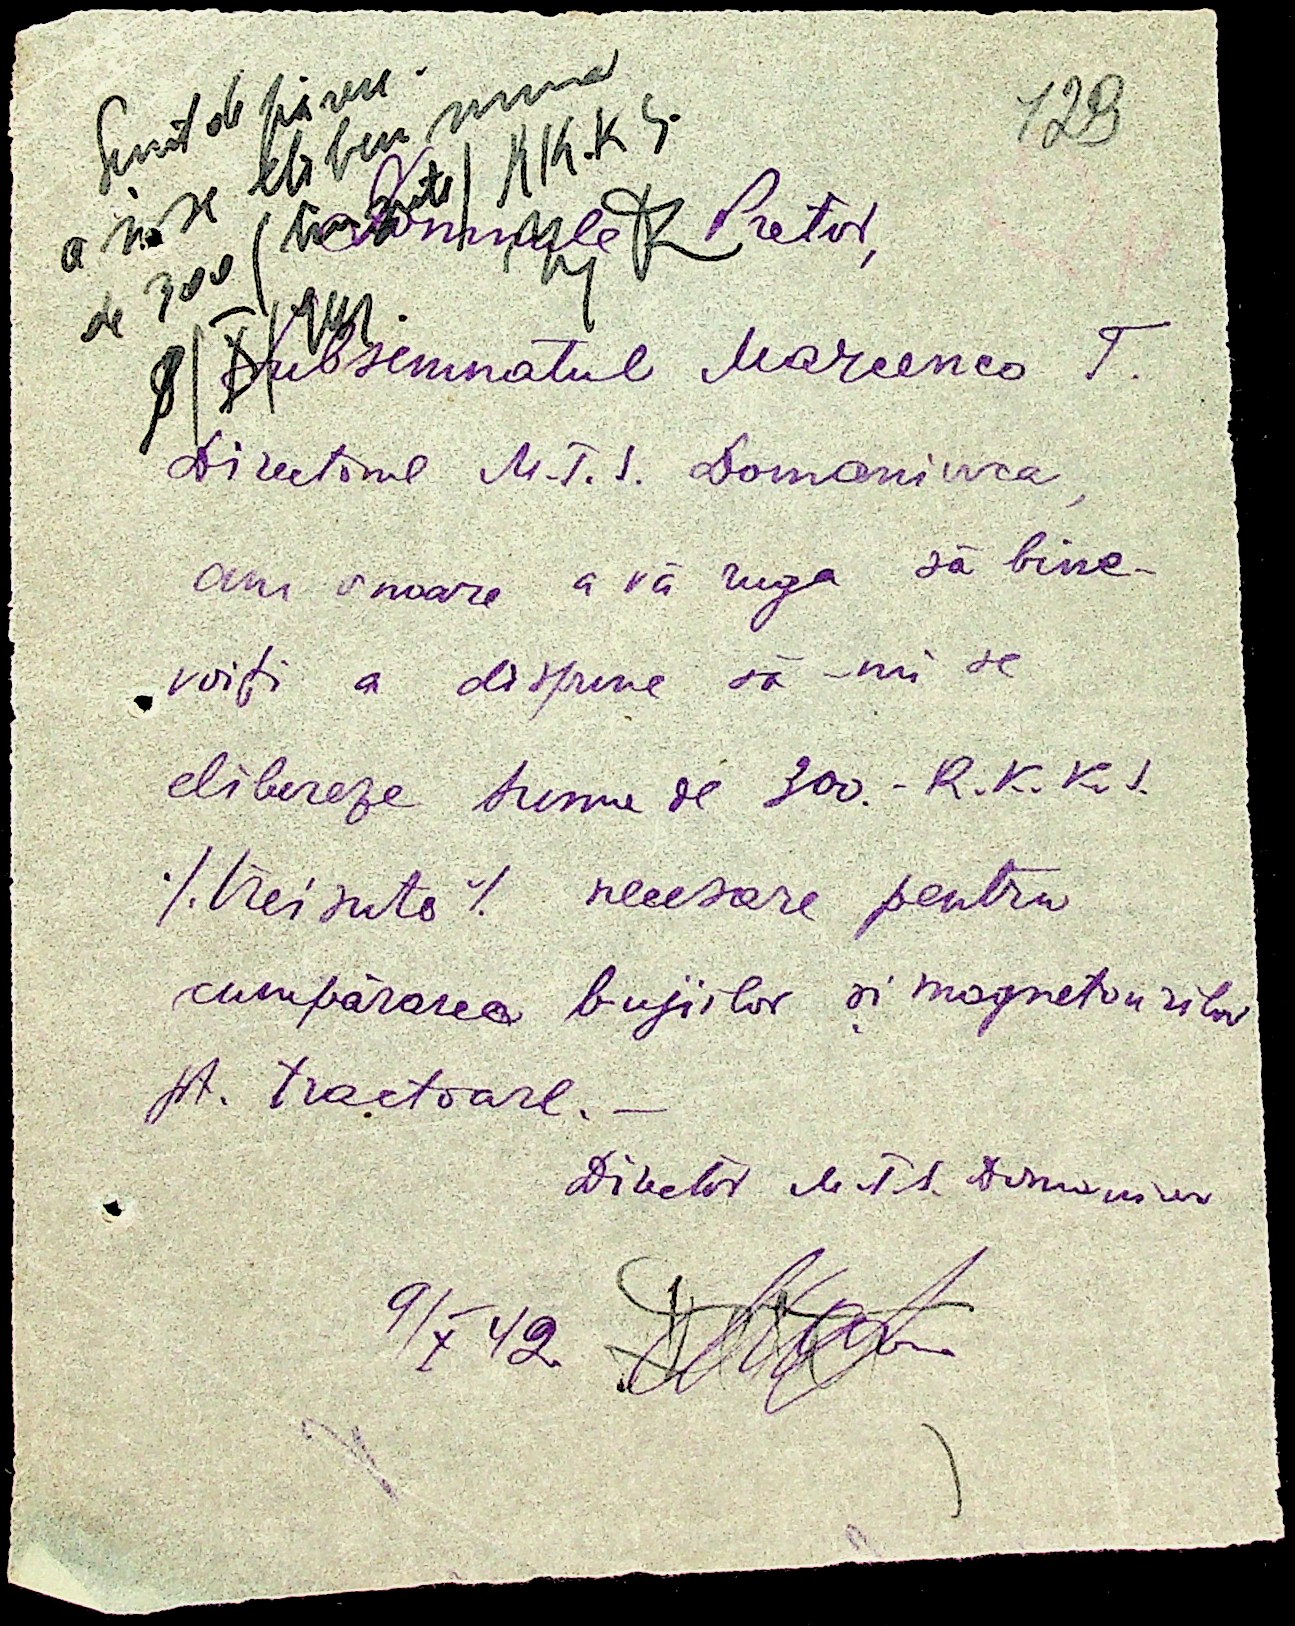 129
Sunt de părere
a i se elibera suma
de 300 (trei sute) R.K.K.S.
Domnule Pretor,
Subsemnatul Marcenco T.
Directorul M.T.S. Domaniovca,
am onoare a vă ruga să bine-
voiți a dispune să-mi se
elibereze suma de 300.- R.K.K.S.
./.treisute./. necesare pentru
cumpărarea bujiilor și magnetourilor
pt. tractoare.—
Director M.T.S. Domaniov
9/X 42